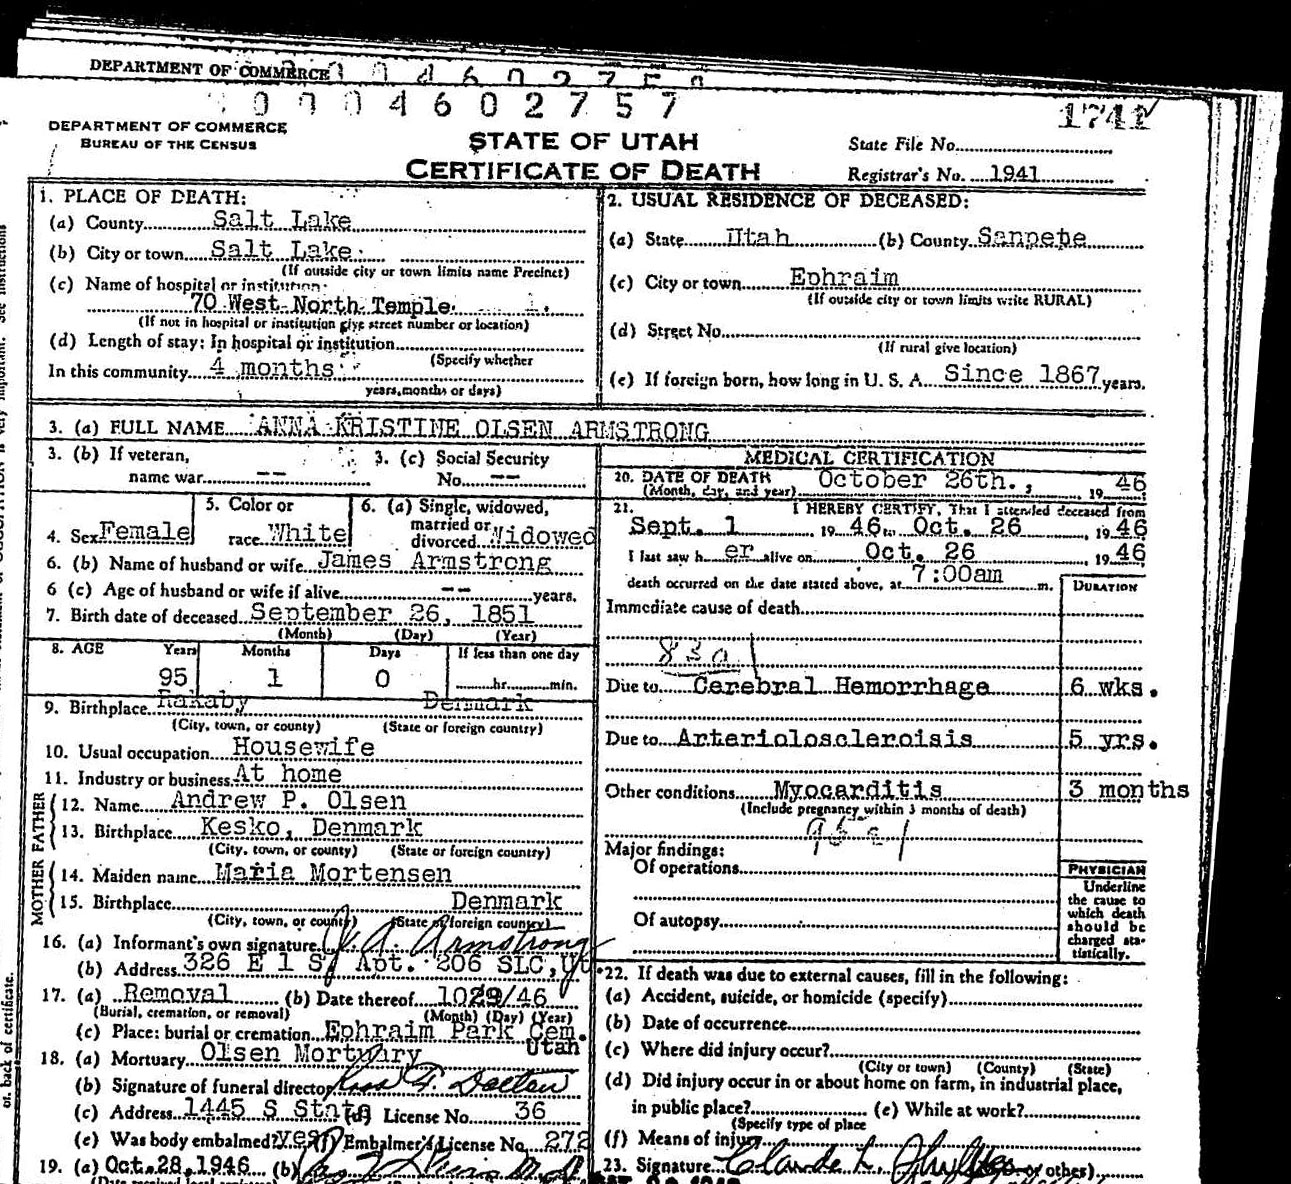 DEPARTMENT OF COMMERCE
0004602757
1741
DEPARTMENT OF COMMERCE
BUREAU OF THE CENSUS
STATE OF UTAH
CERTIFICATE OF DEATH
State File No.
Registrar's No. 1941
1. PLACE OF DEATH:
(a) County Salt Lake
(b) City or town Salt Lake
(If outside city or town limits name Precinct)
(c) Name of hospital or institution:
70 West North Temple
(If not in hospital or institution give street number or location)
(d) Length of stay: In hospital or institution
(Specify whether
In this community 4 months
years, months or days)
2. USUAL RESIDENCE OF DECEASED:
(a) State Utah (b) County Sanpete
(c) City or town Ephraim
(If outside city or town limits write RURAL)
(d) Street No.
(If rural give location)
(e) If foreign born, how long in U. S. A. Since 1867 years.
3. (a) FULL NAME ANNA KRISTINE OLSEN ARMSTRONG
3. (b) If veteran,
name war --
3. (c) Social Security
No. --
4. Sex Female
5. Color or
race White
6. (a) Single, widowed,
married or
divorced Widowed
6. (b) Name of husband or wife James Armstrong
6 (c) Age of husband or wife if alive -- years.
7. Birth date of deceased September 26, 1851
(Month) (Day) (Year)
8. AGE Years Months Days If less than one day
95 1 0 hr. min.
9. Birthplace Rakaby Denmark
(City, town, or county) (State or foreign country)
10. Usual occupation Housewife
11. Industry or business At home
FATHER
12. Name Andrew P. Olsen
13. Birthplace Kesko, Denmark
(City, town, or county) (State or foreign country)
MOTHER
14. Maiden name Maria Mortensen
15. Birthplace Denmark
(City, town, or county) (State or foreign country)
16. (a) Informant's own signature J. A. Armstrong
(b) Address 326 E 1 S Apt. 206 SLC, Ut
17. (a) Removal (b) Date thereof 1029/46
(Burial, cremation, or removal) (Month) (Day) (Year)
(c) Place: burial or cremation Ephraim Park Cem.
Utah
18. (a) Mortuary Olsen Mortuary
(b) Signature of funeral director
(c) Address 1445 S State (d) License No. 36
(e) Was body embalmed? yes (f) Embalmer's License No. 272
19. (a) Oct. 28, 1946 (b)
MEDICAL CERTIFICATION
20. DATE OF DEATH October 26th., 19 46
(Month, day, and year)
21. I HEREBY CERTIFY, That I attended deceased from
Sept. 1 19 46 to Oct. 26 19 46
I last saw h er alive on Oct. 26 19 46
death occurred on the date stated above, at 7:00am m.
DURATION
Immediate cause of death
83a
Due to Cerebral Hemorrhage 6 wks.
Due to Arterioloscleroisis 5 yrs.
Other conditions Myocarditis 3 months
(Include pregnancy within 3 months of death)
Major findings:
Of operations
Of autopsy
PHYSICIAN
Underline
the cause to
which death
should be
charged sta-
tistically.
22. If death was due to external causes, fill in the following:
(a) Accident, suicide, or homicide (specify)
(b) Date of occurrence
(c) Where did injury occur?
(City or town) (County) (State)
(d) Did injury occur in or about home on farm, in industrial place,
in public place? (e) While at work?
(Specify type of place
(f) Means of injury
23. Signature Claude L. or other)
of back of certificate.